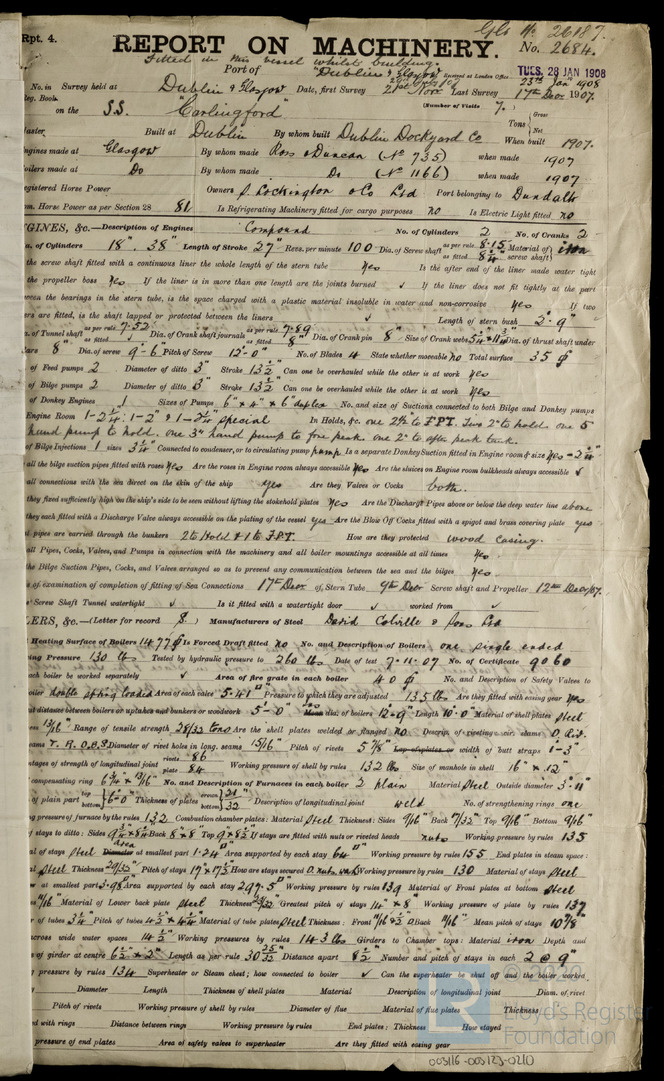 Rpt. 4.
Gls No 26187.
REPORT ON MACHINERY.
No. 2684.
Fitted in this vessel whilst building.
Port of Dublin & Glasgow
Received at London Office TUES. 28 JAN 1908
23rd Jan 1908
No. in Survey held at Dublin & Glasgow Date, first Survey Last Survey 17th Decr 1907.
Reg. Book.
(Number of Visits 7.)
on the S.S. "Carlingford"
Tons { Gross
Net
Master Built at Dublin By whom built Dublin Dockyard Co When built 1907.
Engines made at Glasgow By whom made Ross & Duncan (No 735) when made 1907
Boilers made at Do By whom made Do (No 1166) when made 1907
Registered Horse Power Owners J. Lockington & Co Ltd Port belonging to Dundalk
Nom. Horse Power as per Section 28 81 Is Refrigerating Machinery fitted for cargo purposes no Is Electric Light fitted no
ENGINES, &c.—Description of Engines Compound No. of Cylinders 2 No. of Cranks 2
Dia. of Cylinders 18". 38" Length of Stroke 27" Revs. per minute 100 Dia. of Screw shaft as per rule 8.15 as fitted 8 1/4" Material of screw shaft iron
the screw shaft fitted with a continuous liner the whole length of the stern tube Yes Is the after end of the liner made water tight
the propeller boss Yes If the liner is in more than one length are the joints burned ✓ If the liner does not fit tightly at the part
between the bearings in the stern tube, is the space charged with a plastic material insoluble in water and non-corrosive Yes If two
liners are fitted, is the shaft lapped or protected between the liners ✓ Length of stern bush 2'-9"
Dia. of Tunnel shaft as per rule 7.52 as fitted ✓ Dia. of Crank shaft journals as per rule 7.89 as fitted 8" Dia. of Crank pin 8" Size of Crank webs Dia. of thrust shaft under
collars 8" Dia. of screw 9'-6" Pitch of Screw 12'-0" No. of Blades 4 State whether moveable no Total surface 35
of Feed pumps 2 Diameter of ditto 3" Stroke 13 1/2 Can one be overhauled while the other is at work Yes
of Bilge pumps 2 Diameter of ditto 3" Stroke 13 1/2 Can one be overhauled while the other is at work Yes
of Donkey Engines 1 Sizes of Pumps 6" x 4" x 6" duplex No. and size of Suctions connected to both Bilge and Donkey pumps
Engine Room 1-2 1/4": 1-2" & 1-2 1/4" special In Holds, &c. one 2 1/2 to F.P.T. Two 2" to hold. one 5
hand pump to hold. one 3" hand pump to fore peak one 2" to after peak tank.
of Bilge Injections 1 sizes 3 1/4" Connected to condenser, or to circulating pump pump Is a separate Donkey Suction fitted in Engine room & size Yes - 2 1/4"
all the bilge suction pipes fitted with roses Yes Are the roses in Engine room always accessible Yes Are the sluices on Engine room bulkheads always accessible ✓
all connections with the sea direct on the skin of the ship yes Are they Valves or Cocks both.
they fixed sufficiently high on the ship's side to be seen without lifting the stokehold plates Yes Are the Discharge Pipes above or below the deep water line above
they each fitted with a Discharge Valve always accessible on the plating of the vessel yes Are the Blow Off Cocks fitted with a spigot and brass covering plate yes
pipes are carried through the bunkers 2 to Hold & 1 to F.P.T. How are they protected wood casing.
all Pipes, Cocks, Valves, and Pumps in connection with the machinery and all boiler mountings accessible at all times Yes
the Bilge Suction Pipes, Cocks, and Valves arranged so as to prevent any communication between the sea and the bilges Yes.
of examination of completion of fitting of Sea Connections 17th Decr of Stern Tube 9th Decr Screw shaft and Propeller 12th Decr/07.
Screw Shaft Tunnel watertight ✓ Is it fitted with a watertight door ✓ worked from ✓
BOILERS, &c.—(Letter for record S.) Manufacturers of Steel David Colville & Sons Ltd
Heating Surface of Boilers 1477 Is Forced Draft fitted no No. and Description of Boilers one single ended
Working Pressure 130 lbs Tested by hydraulic pressure to 260 lbs Date of test 7.11.07 No. of Certificate 9060
each boiler be worked separately ✓ Area of fire grate in each boiler 40 No. and Description of Safety Valves to
boiler double spring loaded Area of each valve 5.41 Pressure to which they are adjusted 135 lbs Are they fitted with easing gear Yes
distance between boilers or uptakes and bunkers or woodwork 5'-0" Mean dia. of boilers 12'-9" Length 10'-0" Material of shell plates Steel
13/16" Range of tensile strength 28/32 tons Are the shell plates welded or flanged no Descrip. of riveting: cir. seams D. Riv.
seams T. R. D.B.S. Diameter of rivet holes in long. seams 15/16" Pitch of rivets 5 7/8 Lap of plates or width of butt straps 1'-3"
percentages of strength of longitudinal joint rivets 86 plate 84 Working pressure of shell by rules 132 lbs Size of manhole in shell 16" x 12"
compensating ring 6 3/4" x 13/16" No. and Description of Furnaces in each boiler 2 plain Material Steel Outside diameter 3'-11"
of plain part top bottom 6'-0" Thickness of plates crown bottom 21/32" Description of longitudinal joint weld No. of strengthening rings one
Working pressure of furnace by the rules 132 Combustion chamber plates: Material Steel Thickness: Sides 9/16" Back 17/32" Top 9/16" Bottom 9/16"
Pitch of stays to ditto: Sides Back 8 x 8 Top 9 x 8 1/2 If stays are fitted with nuts or riveted heads nuts Working pressure by rules 135
Material of stays Steel area Diameter at smallest part 1.24" Area supported by each stay 64 Working pressure by rules 155 End plates in steam space:
Material Steel Thickness 29/32" Pitch of stays 17 x 17 1/2 How are stays secured D. nuts & w. Working pressure by rules 130 Material of stays Steel
at smallest part 3.98 Area supported by each stay 297.5 Working pressure by rules 139 Material of Front plates at bottom Steel
11/16" Material of Lower back plate Steel Thickness 23/32" Greatest pitch of stays 14" x 8 Working pressure of plate by rules 137
of tubes 3 1/4" Pitch of tubes 4 1/2 x 4 1/2 Material of tube plates Steel Thickness: Front Back 11/16" Mean pitch of stays 10 7/8"
across wide water spaces 14 1/2 Working pressures by rules 143 lbs Girders to Chamber tops: Material iron Depth and
of girder at centre 6 1/2 x 2" Length as per rule 30 25/32 Distance apart 8 1/2 Number and pitch of stays in each 2 @ 9"
pressure by rules 134 Superheater or Steam chest; how connected to boiler ✓ Can the superheater be shut off and the boiler worked
Diameter Length Thickness of shell plates Material Description of longitudinal joint Diam. of rivet
Pitch of rivets Working pressure of shell by rules Diameter of flue Material of flue plates Thickness
with rings Distance between rings Working pressure by rules End plates: Thickness How stayed
pressure of end plates Area of safety valves to superheater Are they fitted with easing gear
© 2020
LR
Lloyd's Register
Foundation
003116-003123-0210